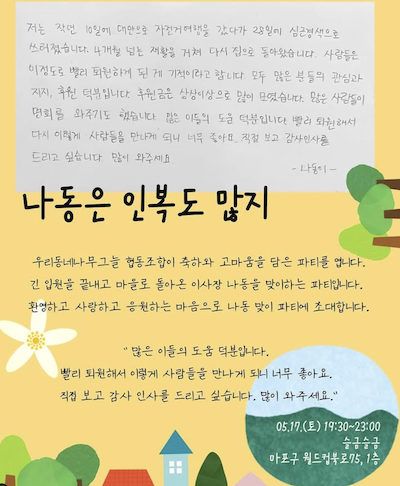 저는 작년 10월에 대만으로 자전거여행을 갔다가 28일에 심근경색으로
쓰러졌습니다. 4개월 넘는 재활을 거쳐 다시 집으로 돌아왔습니다. 사람들은
이정도로 빨리 퇴원하게 된 게 기적이라고 합니다. 모두 많은 분들의 관심과
지지, 후원 덕분입니다. 후원금은 상상이상으로 많이 모였습니다. 많은 사람들이
면회를 와주기도 했습니다. 많은 이들의 도움 덕분입니다. 빨리 퇴원해서
다시 이렇게 사람들을 만나게 되니 너무 좋아요. 직접 보고 감사인사를
드리고 싶습니다. 많이 와주세요.
- 나동이 -
나동은 인복도 많지
우리동네나무그늘 협동조합이 축하와 고마움을 담은 파티를 엽니다.
긴 입원을 끝내고 마을로 돌아온 이사장 나동을 맞이하는 파티입니다.
환영하고 사랑하고 응원하는 마음으로 나동 맞이 파티에 초대합니다.
" 많은 이들의 도움 덕분입니다.
빨리 퇴원해서 이렇게 사람들을 만나게 되니 너무 좋아요.
직접 보고 감사 인사를 드리고 싶습니다. 많이 와주세요."
05.17.(토) 19:30~23:00
술금술금
마포구 월드컵북로75, 1층